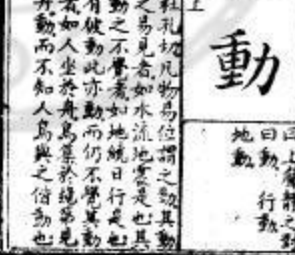 上
動
曰上聲謂之動
曰動 行動
地動
杜孔切凡物易位謂之動其動
之易見者如水流地震是也其
動之不覺者如地繞日行是也
有彼動此亦動而仍不覺其動
者如人坐於舟鳥集於繩第見
舟動而不知人鳥與之偕動也